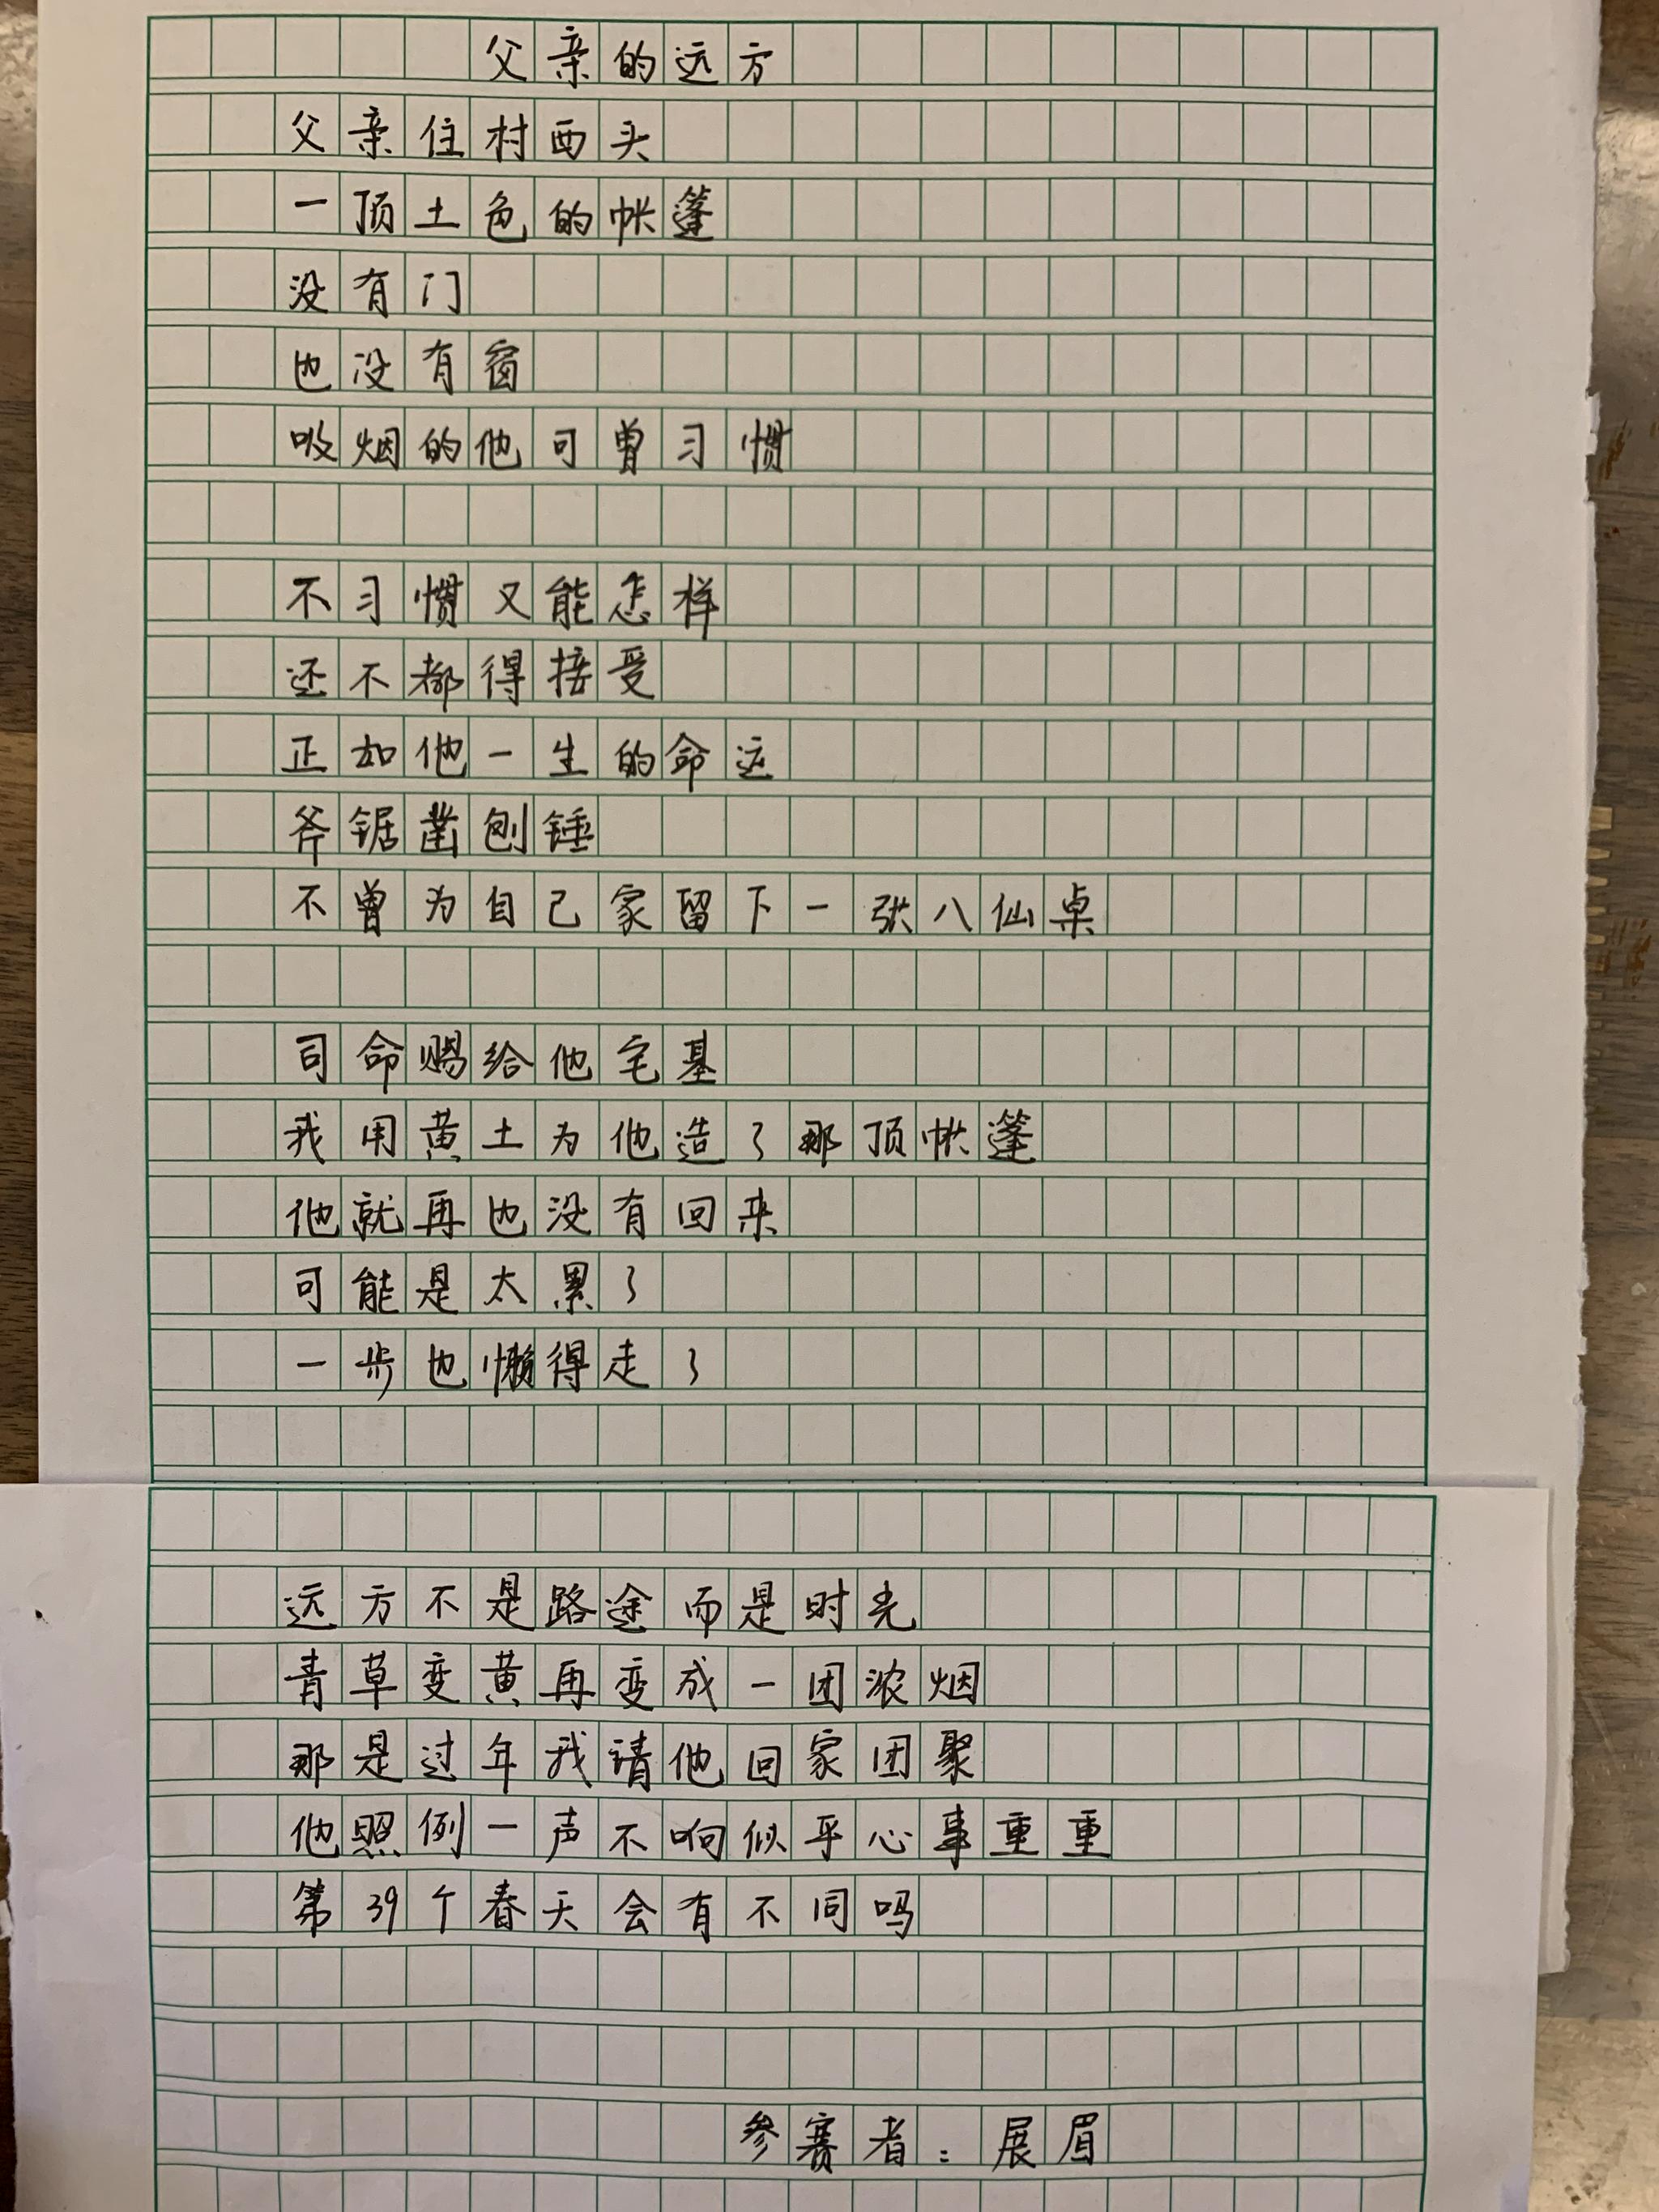 父亲的远方
父亲住村西头
一顶土色的帐篷
没有门
也没有窗
吸烟的他可曾习惯
不习惯又能怎样
还不都得接受
正如他一生的命运
斧锯凿刨锤
不曾为自己家留下一张八仙桌
司命赐给他宅基
我用黄土为他造了那顶帐篷
他就再也没有回来
可能是太累了
一步也懒得走了
远方不是路途而是时光
青草变黄再变成一团浓烟
那是过年我请他回家团聚
他照例一声不响似乎心事重重
第39个春天会有不同吗
参赛者:展眉